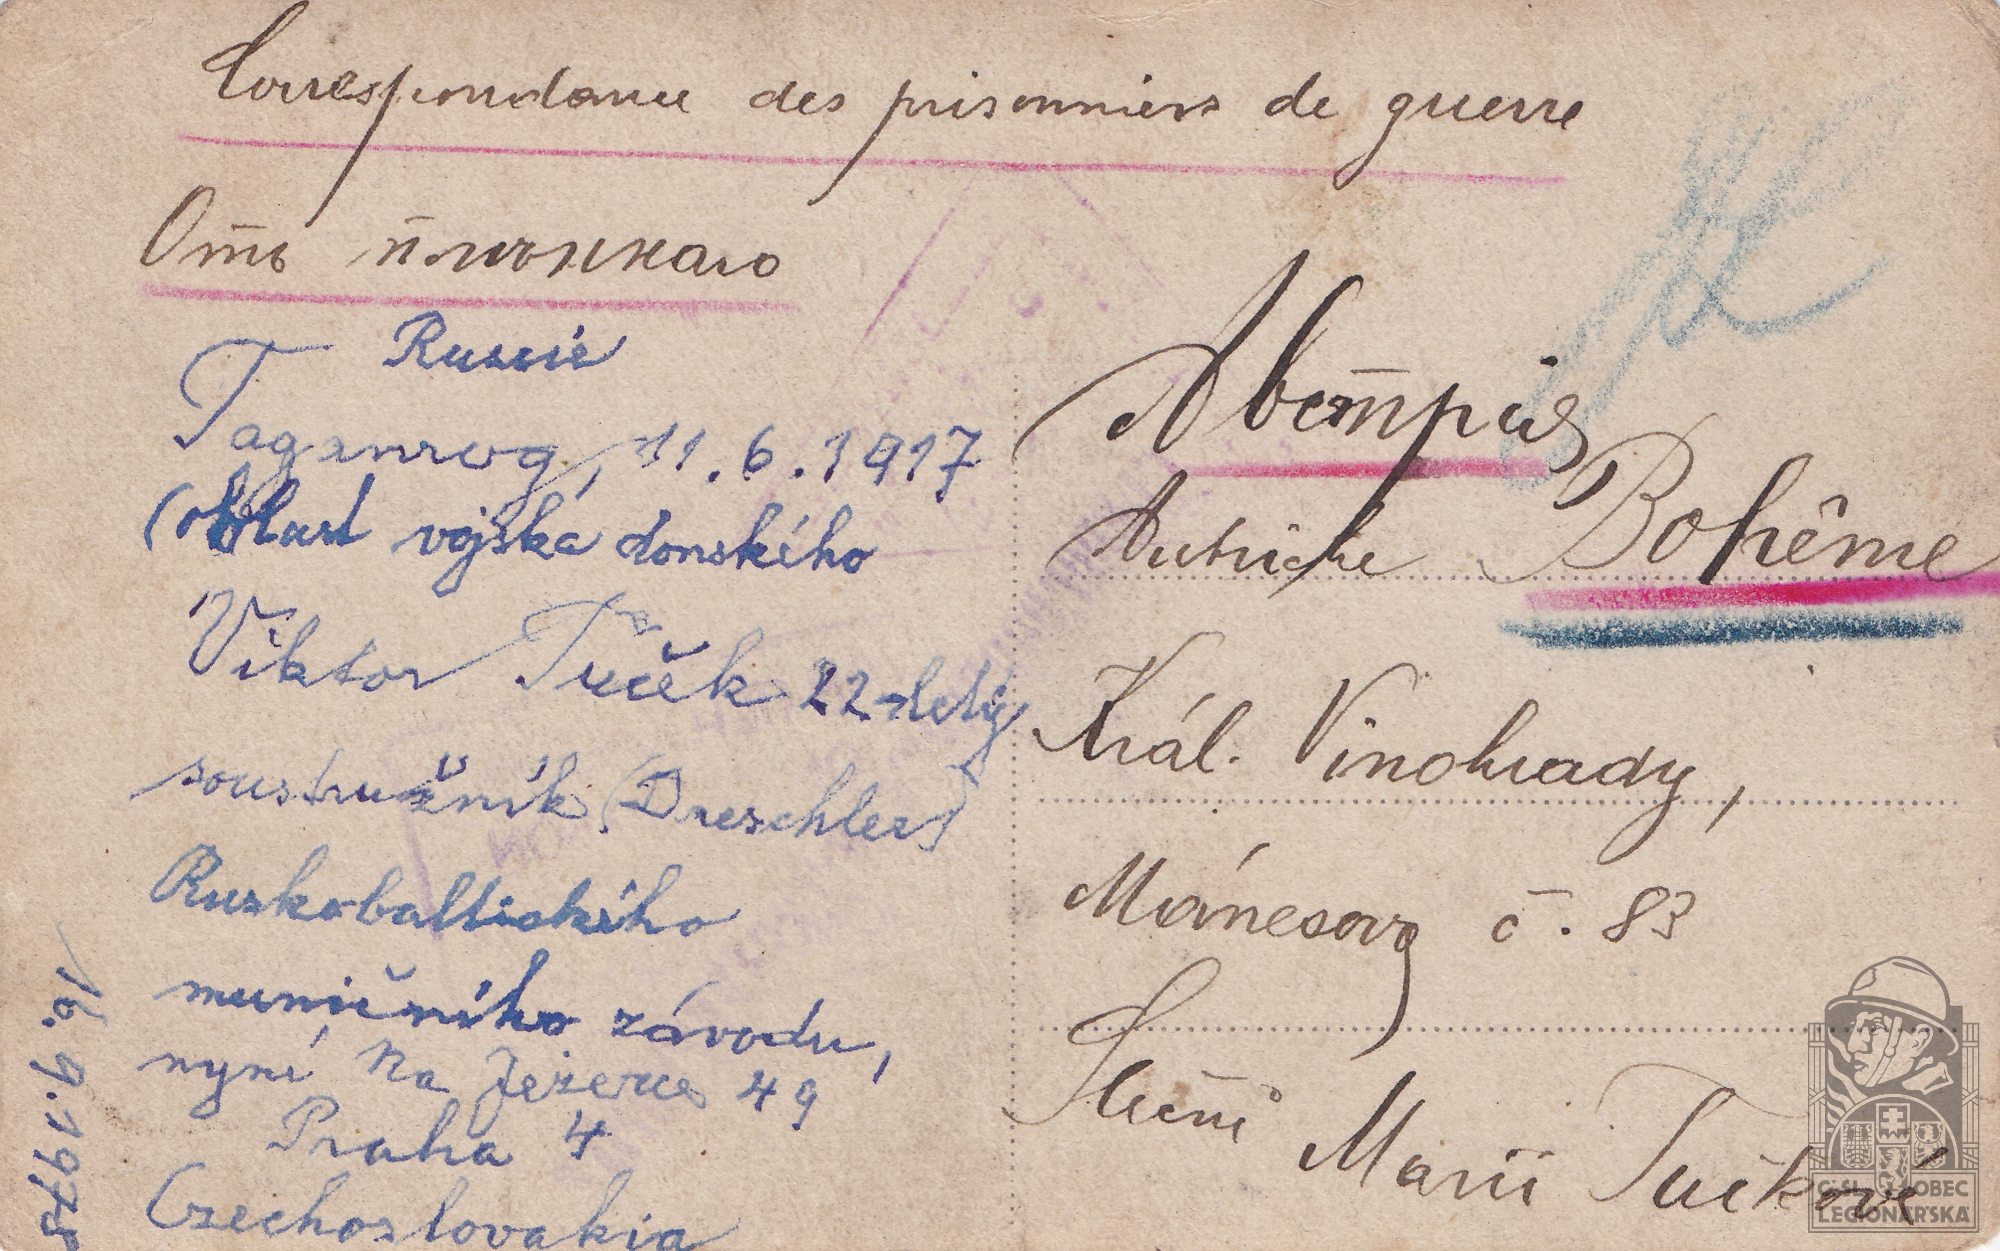 Correspondance des prisonniers de guerre
Отъ плѣннаго
Russie
Taganrog, 11.6.1917
(oblast vojska donského
Viktor Tuček 22-letý
soustružník (Dreschler)
Ruskobaltického
muničního závodu,
nyní Na Jezerce 49
Praha 4
Czechoslovakia
16.9.1975
Австрія
Autriche Bohême
Král. Vinohrady,
Mánesova č. 83
Sleční
Marii Tučkové
ČSL OBEC
LEGIONÁŘSKÁ